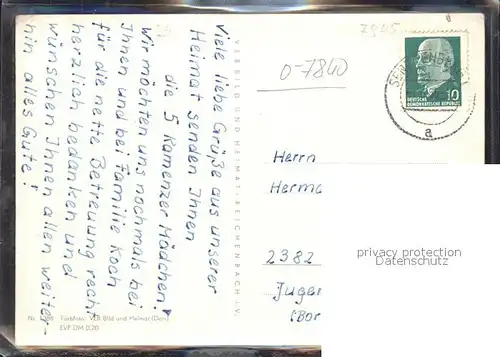 Viele liebe Grüße aus unserer
Heimat senden Ihnen
die 5 Kamenzer Mädchen!
Wir möchten uns nochmals bei
Ihnen und bei Familie Koch
für die nette Betreuung recht
herzlich bedanken und
wünschen Ihnen allen weiter-
hin alles Gute!
VEB BILD UND HEIMAT REICHENBACH i. V.
Farbfoto: VEB Bild und Heimat
EVP DM 0,20
7945
0-7840
10
DEUTSCHE
DEMOKRATISCHE REPUBLIK
a
Herrn
Herma
2382
Juger
(Bor
privacy protection
Datenschutz